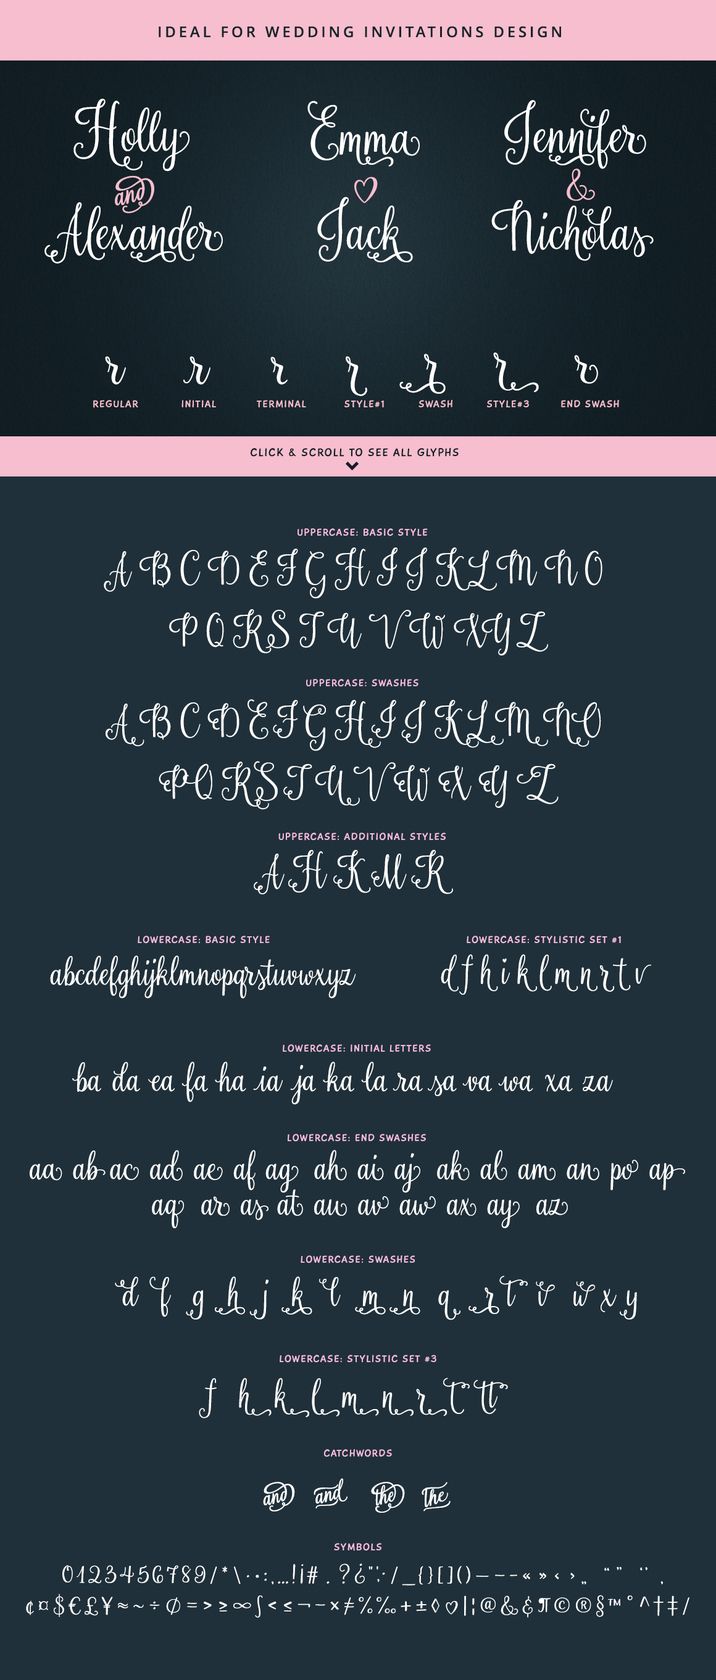 IDEAL FOR WEDDING INVITATIONS DESIGN
Holly Emma Jennifer
and &
Alexander Jack Nicholas
r r r r r r r
REGULAR INITIAL TERMINAL STYLE#1 SWASH STYLE#3 END SWASH
CLICK & SCROLL TO SEE ALL GLYPHS
UPPERCASE: BASIC STYLE
A B C D E F G H I J K L M N O
P Q R S T U V W X Y Z
UPPERCASE: SWASHES
A B C D E F G H I J K L M N O
P Q R S T U V W X Y Z
UPPERCASE: ADDITIONAL STYLES
A H K M R
LOWERCASE: BASIC STYLE LOWERCASE: STYLISTIC SET #1
abcdefghijklmnopqrstuvwxyz d f h i k l m n r t v
LOWERCASE: INITIAL LETTERS
ba da ea fa ha ia ja ka la ra sa va wa xa za
LOWERCASE: END SWASHES
aa ab ac ad ae af ag ah ai aj ak al am an po ap
aq ar as at au av aw ax ay az
LOWERCASE: SWASHES
d f g h j k l m n q r t v w x y
LOWERCASE: STYLISTIC SET #3
f h k l m n r t tt
CATCHWORDS
and and the the
SYMBOLS
0123456789/*\·•:,…!¡#.?¿"':/_{}[]()—–-«»‹›„ “” ‘’ ‚
¢¤$€£¥≈~÷∅=>≥∞∫<≤¬−×≠%‰+±◊♡|¦@&¶©®§™°^†‡/